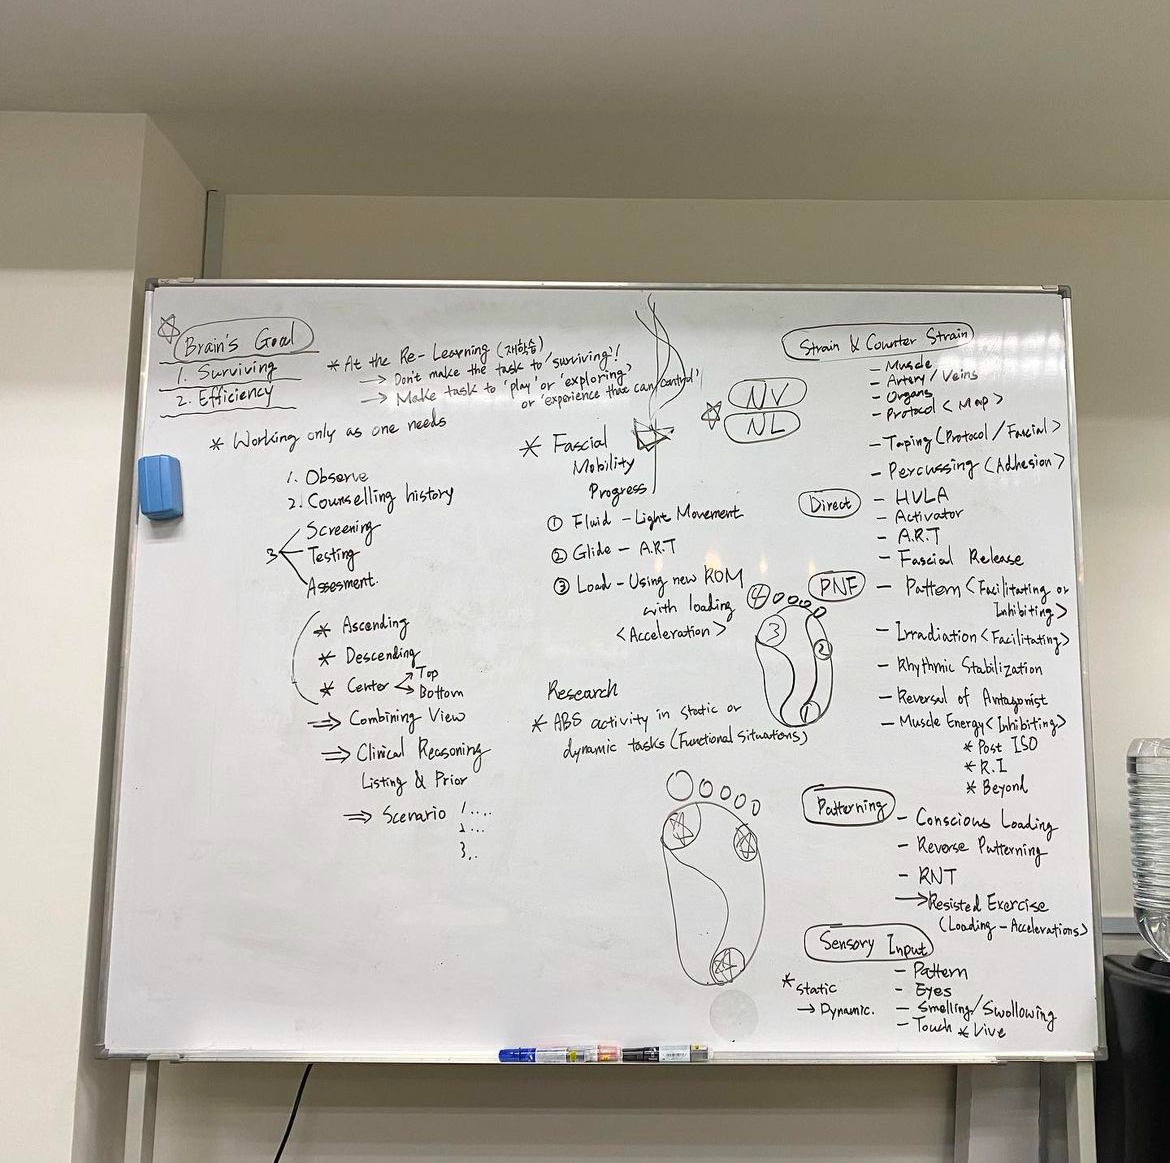 Brain's Goal
1. Surviving
2. Efficiency
* At the Re-Learning (재학습)
→ Don't make the task to 'surviving'!
→ Make task to 'play' or 'exploring'
or 'experience that can control'
* Working only as one needs
1. Observe
2. Counselling history
3
Screening
Testing
Assesment.
* Ascending
* Descending
* Center
Top
Bottom
⇒ Combining View
⇒ Clinical Reasoning
Listing & Prior
⇒ Scenario 1....
2...
3..
* Fascial
Mobility
Progress
① Fluid - Light Movement
② Glide - A.R.T
③ Load - Using new ROM
with loading
<Acceleration>
Research
* ABS activity in static or
dynamic tasks (Functional Situations)
NV
NL
4
3
2
1
Strain & Counter Strain
- Muscle
- Artery / Veins
- Organs
- Protocol <Map>
- Taping (Protocol / Fascial>
- Percussing <Adhesion>
Direct
- HVLA
- Activator
- A.R.T
- Fascial Release
PNF
- Pattern <Facilitating or
Inhibiting>
- Irradiation <Facilitating>
- Rhythmic Stabilization
- Reversal of Antagonist
- Muscle Energy <Inhibiting>
* Post ISO
* R.I
* Beyond
Patterning
- Conscious Loading
- Reverse Patterning
- RNT
→ Resisted Exercise
(Loading - Accelerations>
Sensory Input
* Static
→ Dynamic.
- Pattern
- Eyes
- Smelling/Swollowing
- Touch * Live